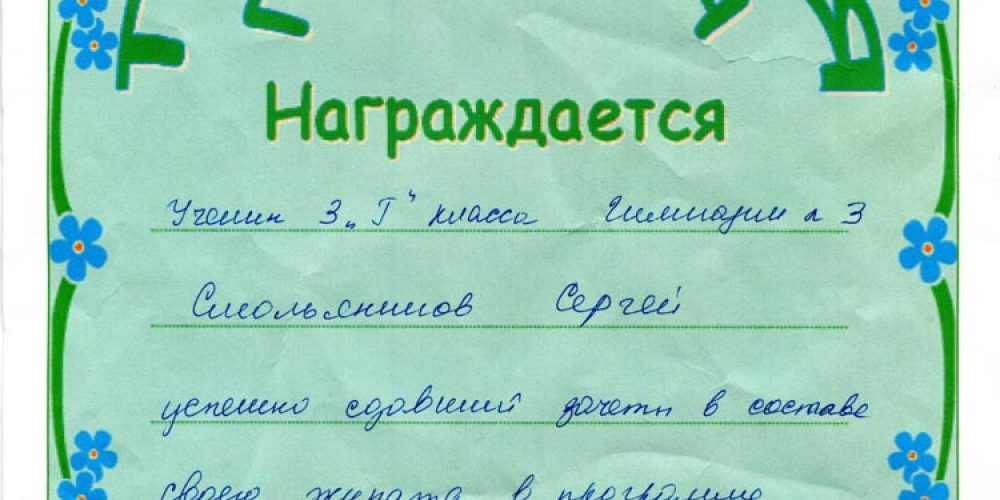 Награждается
Ученик 3 „Г" класса Гимназии № 3
Смольянинов Сергей
успешно сдавший зачеты в составе
своего экипажа в программе